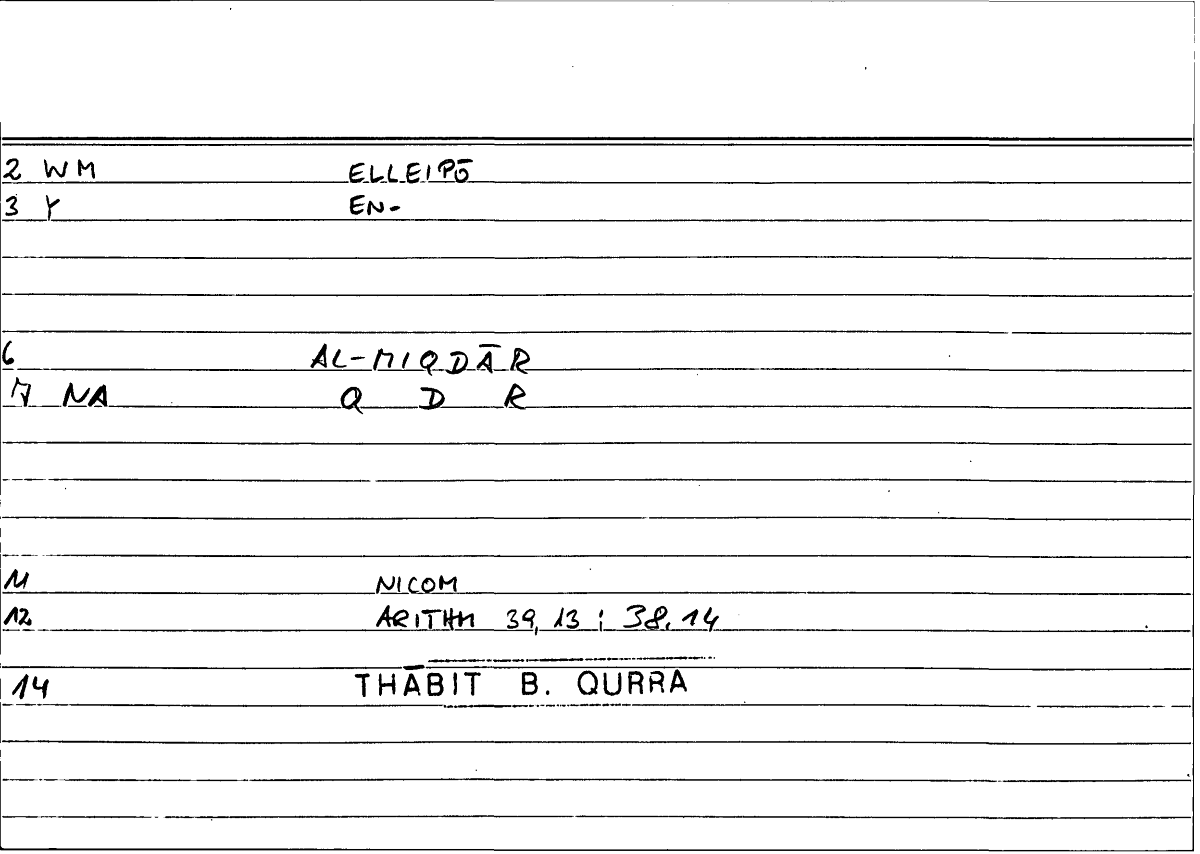 2 WM ELLEIPŌ
3 Y EN-
6 AL-MIQDĀR
7 NA Q D R
11 NICOM
12 ARITHM 39,13 ; 38,14
14 THĀBIT B. QURRA